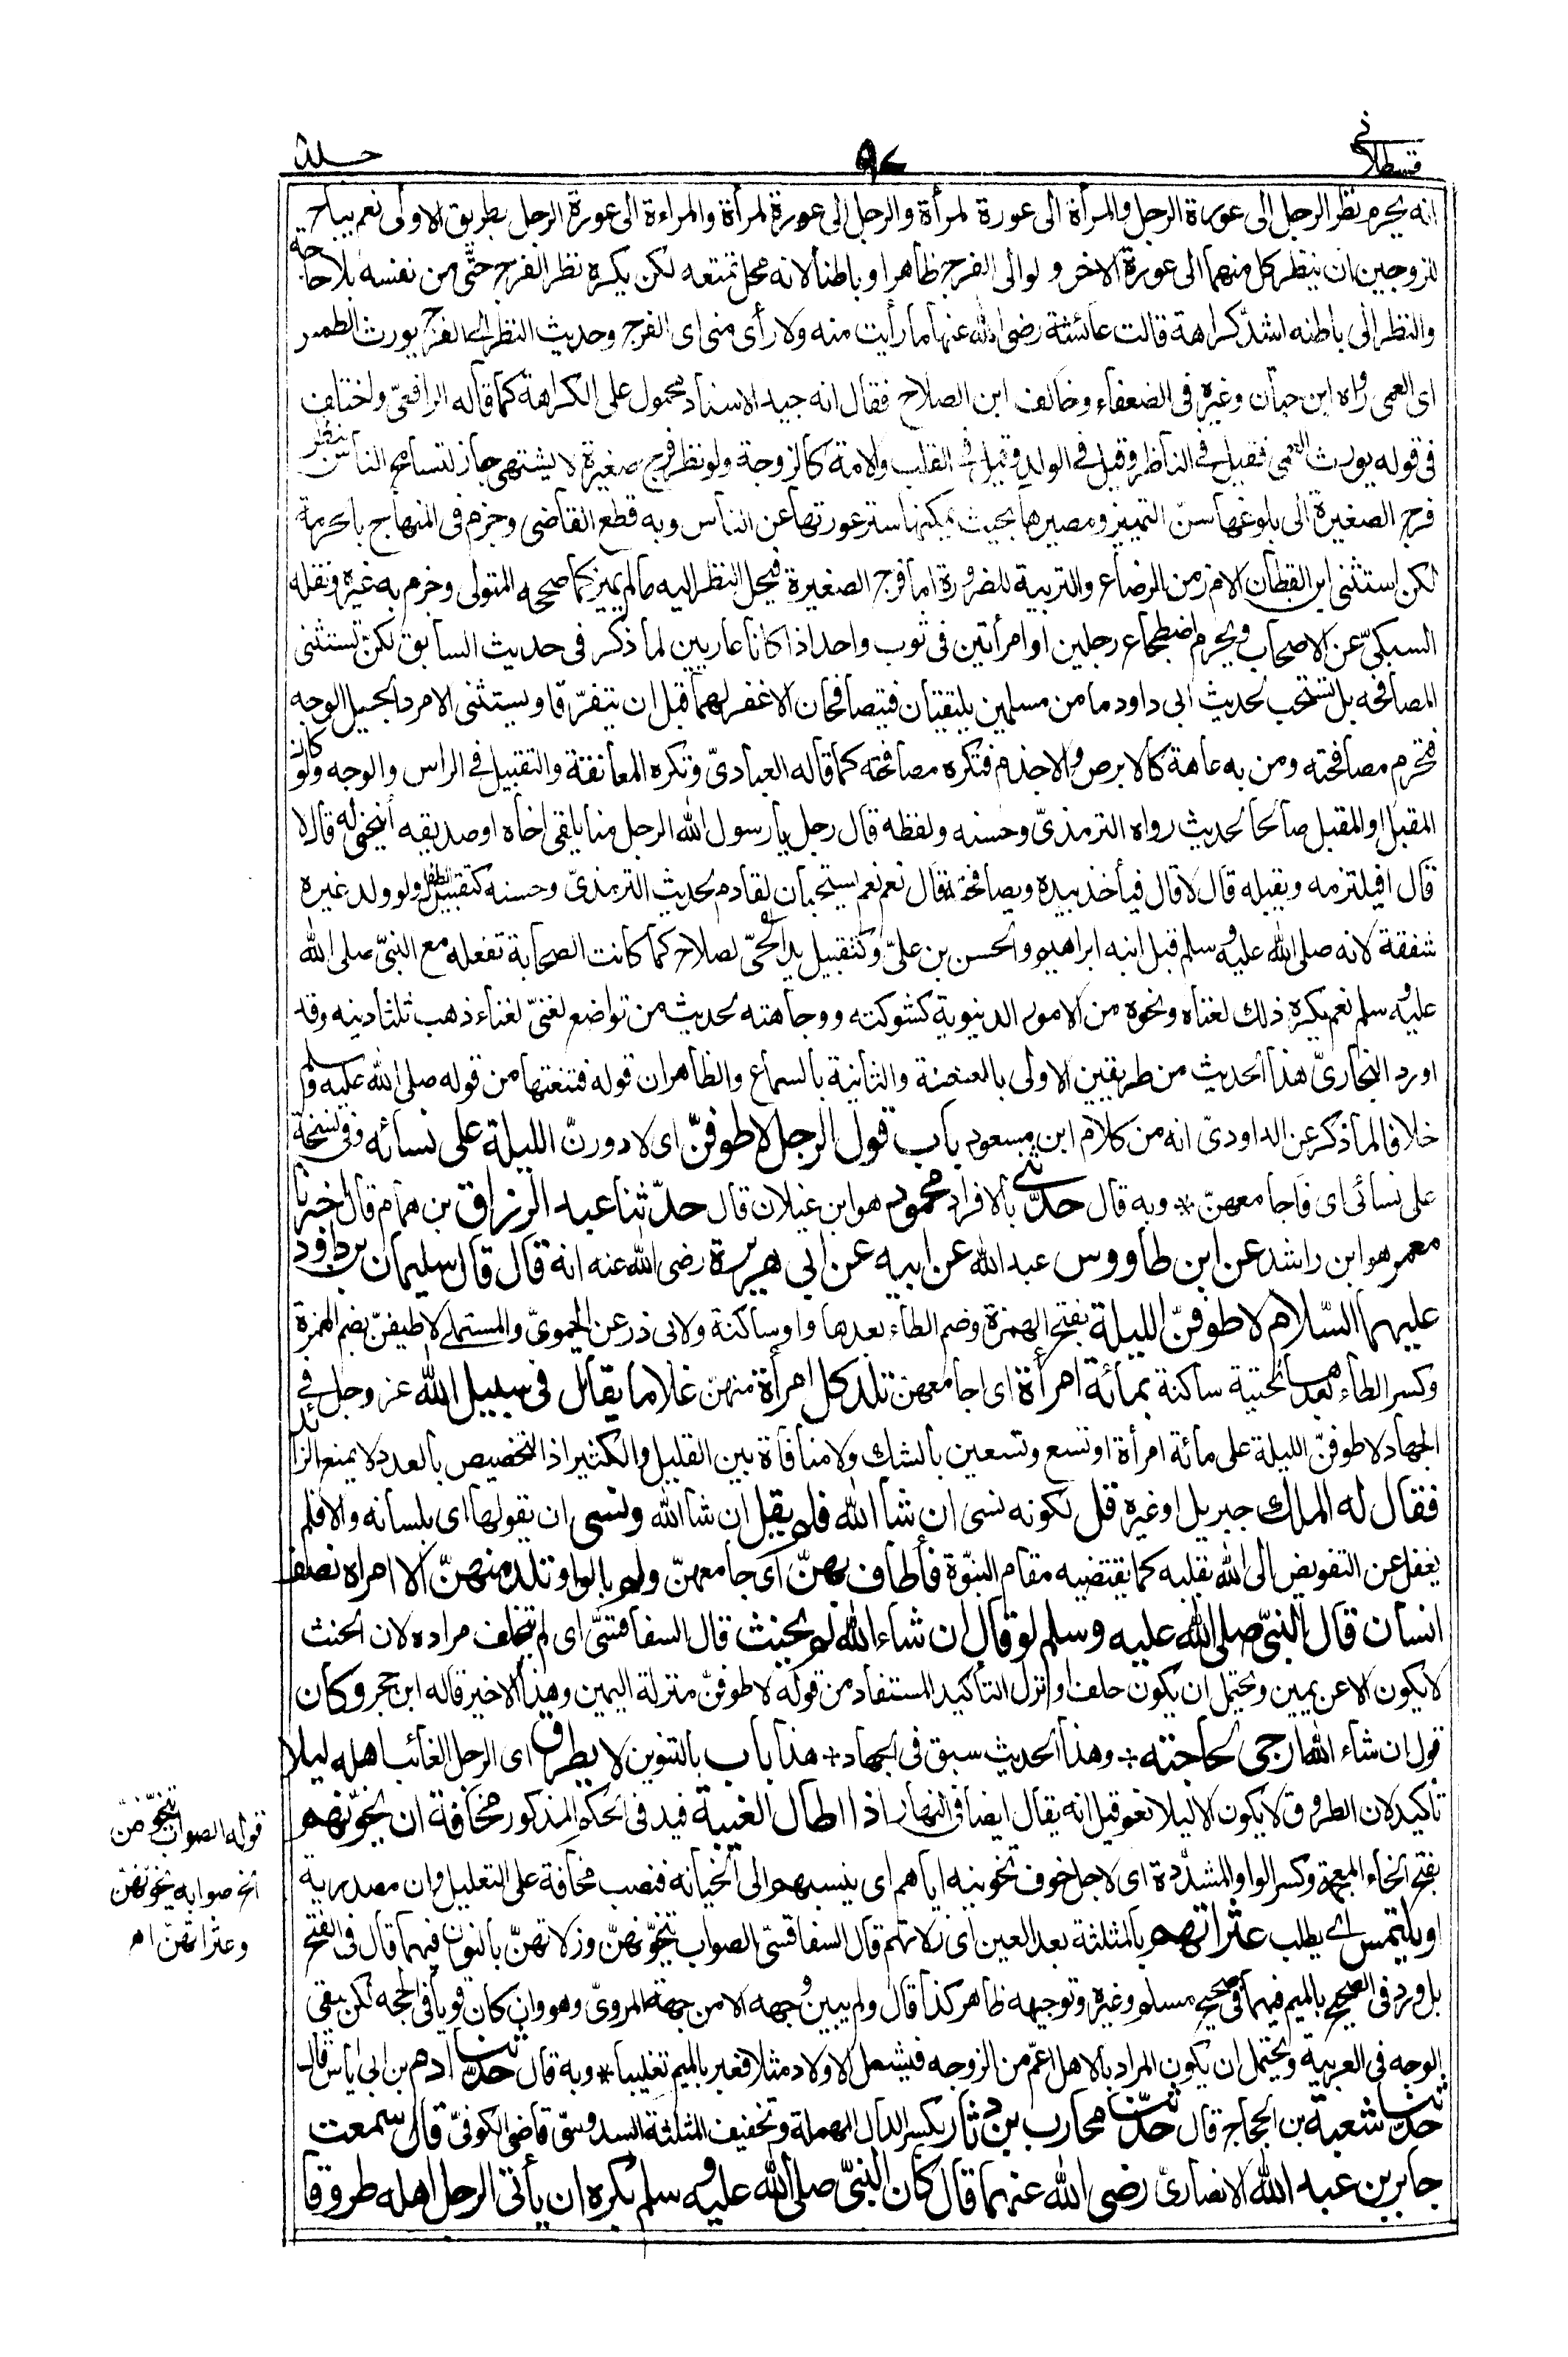 قسطلانی ٩٧ جلد
انه يحرم نظر الرجل الى عورة الرجل والمرأة الى عورة لمرأة والرجل الى عورة لمرأة والمراءة الى عورة الرجل بطريق الاولى نعم يباح
للزوجين ان ينظر كل منهما الى عورة الاخر ولو الى الفرج ظاهرا وباطنا لانه محل تمتعه لكن يكره نظر الفرج حتّى من نفسه بلا حاجة
والنظر الى باطنه اشدّ كراهة قالت عائشة رضى الله عنها ما رأيت منه ولا رأى منى اى الفرج وحديث النظر الى الفرج يورث الطمس
اى العمى رواه ابن حبان وغيره فى الضعفاء وخالف ابن الصلاح فقال انه جيد الاسناد محمول على الكراهة كما قاله الرافعىّ واختلف
فى قوله يورث العمى فقيل فى الناظر وقيل فى الولد وقيل فى القلب والامة كالزوجة ولو نظر فرج صغيرة لا يشتهى جاز لتسامح الناس بنظر
فرج الصغيرة الى بلوغها سنّ التمييز ومصيرها بحيث يمكنها ستر عورتها عن الناس وبه قطع القاضى وجزم فى المنهاج بالحرمة
لكن استثنى ابن القطان الام زمن الرضاع والتربية للضرورة اما فرج الصغيرة فيحل النظر اليه ما لم يميز كما صححه المتولى وجزم به غيره ونقله
السبكىّ عن الاصحاب ويحرم اضطجاع رجلين او امرأتين فى ثوب واحد اذا كانا عاريين لما ذكر فى حديث السابق لكن تستثنى
المصافحه بل تستحب لحديث ابى داود ما من مسلمين يلتقيان فيتصافحان الا غفر لهما قبل ان يتفرّقا ويستثنى الامرد الجميل الوجه
فتحرم مصافحته ومن به عاهة كالابرص والاجذم فتكره مصافحته كما قاله العبادىّ وتكره المعانقة والتقبيل فى الراس والوجه ولو كان
المقبل او المقبل صالحا لحديث رواه الترمذىّ وحسنه ولفظه قال رجل يا رسول الله الرجل منا يلقى اخاه او صديقه أينحنى له قال لا
قال افيلتزمه ويقبله قال لا قال فيأخذ بيده ويصافحه قال نعم نعم يستحبان لقادم لحديث الترمذىّ وحسنه كتقبيل الطفل ولو ولد غيره
شفقة لانه صلى الله عليه وسلم قبل ابنه ابراهيم والحسن بن علىّ وكتقبيل يد الحىّ لصلاح كما كانت الصحابة تفعله مع النبىّ صلى الله
عليه وسلم نعم يكره ذلك لغناه ونحوه من الامور الدنيوية كشوكته ووجاهته لحديث من تواضع لغنىّ لغناء ذهب ثلثا دينه وقد
اورد البخارىّ هذا الحديث من طريقين الاولى بالعنعنة والثانية بالسماع والظاهر ان قوله فتنعتها من قوله صلى الله عليه وسلم
خلافا لما ذكر عن الداودىّ انه من كلام ابن مسعود باب قول الرجل لاطوفنّ اى لادورنّ الليلة على نسائه وفى نسخة
على نسائى اى فاجامعهنّ * وبه قال حدّثنى بالافراد محمود هو ابن غيلان قال حدّثنا عبد الرزاق بن همام قال اخبرنا
معمر هو ابن راشد عن ابن طاووس عبد الله عن ابيه عن ابى هريرة رضى الله عنه انه قال قال سليمان بن داود
عليهما السّلام لاطوفنّ الليلة بفتح الهمزة وضم الطاء بعدها واو ساكنة ولابى ذر عن الحموىّ والمستملى لاطيفنّ بضم الهمزة
وكسر الطاء بعدها تحتية ساكنة بمائة امرأة اى اجامعهنّ تلد كل امرأة منهنّ غلاما يقاتل فى سبيل الله عز وجل فى
الجهاد لاطوفنّ الليلة على مائة امرأة او تسع وتسعين بالشك ولا منافاة بين القليل والكثير اذ التخصيص بالعدد لا يمنع الزائد
فقال له الملك جبريل او غيره قل لكونه نسى ان شا الله فلم يقل ان شا الله ونسى ان يقولها اى بلسانه والا فلم
يغفل عن التفويض الى الله بقلبه كما يقتضيه مقام النبوّة فأطاف بهنّ اى جامعهنّ ولم بالواو تلد منهنّ الا امراة نصف
انسان قال النبىّ صلى الله عليه وسلم لو قال ان شاء الله لم يحنث قال السفاقسىّ اى لم يتخلف مراده لان الحنث
لا يكون الا عن يمين ويحتمل ان يكون حلف او انزل التأكيد المستفاد من قوله لاطوفنّ منزلة اليمين وهذا الاخير قاله ابن حجر وكان
قول ان شاء الله ارجى لحاجته * وهذا الحديث سبق فى الجهاد * هذا باب بالتنوين لا يطرق اى الرجل الغائب اهله ليلا
تأكيد لان الطروق لا يكون الا ليلا نعم قيل انه يقال ايضا فى النهار اذا اطال الغيبة قيد فى الحكم المذكور مخافة ان يخوّنهم
بفتح الخاء المعجمة وكسر الواو المشدّدة اى لاجل خوف تخوينه اياهم اى ينسبهم الى الخيانه فنصب مخافة على التعليل وان مصدرية
او يلتمس اى يطلب عثراتهم بالمثلثة بعد العين اى زلاتهم قال السفاقسىّ الصواب يتخوّنهنّ وزلاتهنّ بالنون فيهما قال فى الفتح
بل ورد فى الصحيح بالميم فيهما فى صحيح مسلم وغيره وتوجيهه ظاهر كذا قال ولم يبين وجهه الا من جهة المروىّ وهو وان كان قويا فى الحجه لكن بقى
الوجه فى العربية ويحتمل ان يكون المراد بالاهل اعمّ من الزوجه فيشمل الاولاد مثلا فعبر بالميم تغليبا * وبه قال حدّثنا ادم بن ابى اياس قال
حدّثنا شعبة بن الحجاج قال حدّثنا محارب بن دثار بكسر الدال المهملة وتخفيف المثلثة السدوسىّ قاضى الكوفىّ قال سمعت
جابر بن عبد الله الانصارىّ رضى الله عنهما قال كان النبىّ صلى الله عليه وسلم يكره ان يأتى الرجل اهله طروقا
قوله الصواب يتخوّنهنّ
الخ صوابه يخوّنهنّ
وعثراتهنّ اه